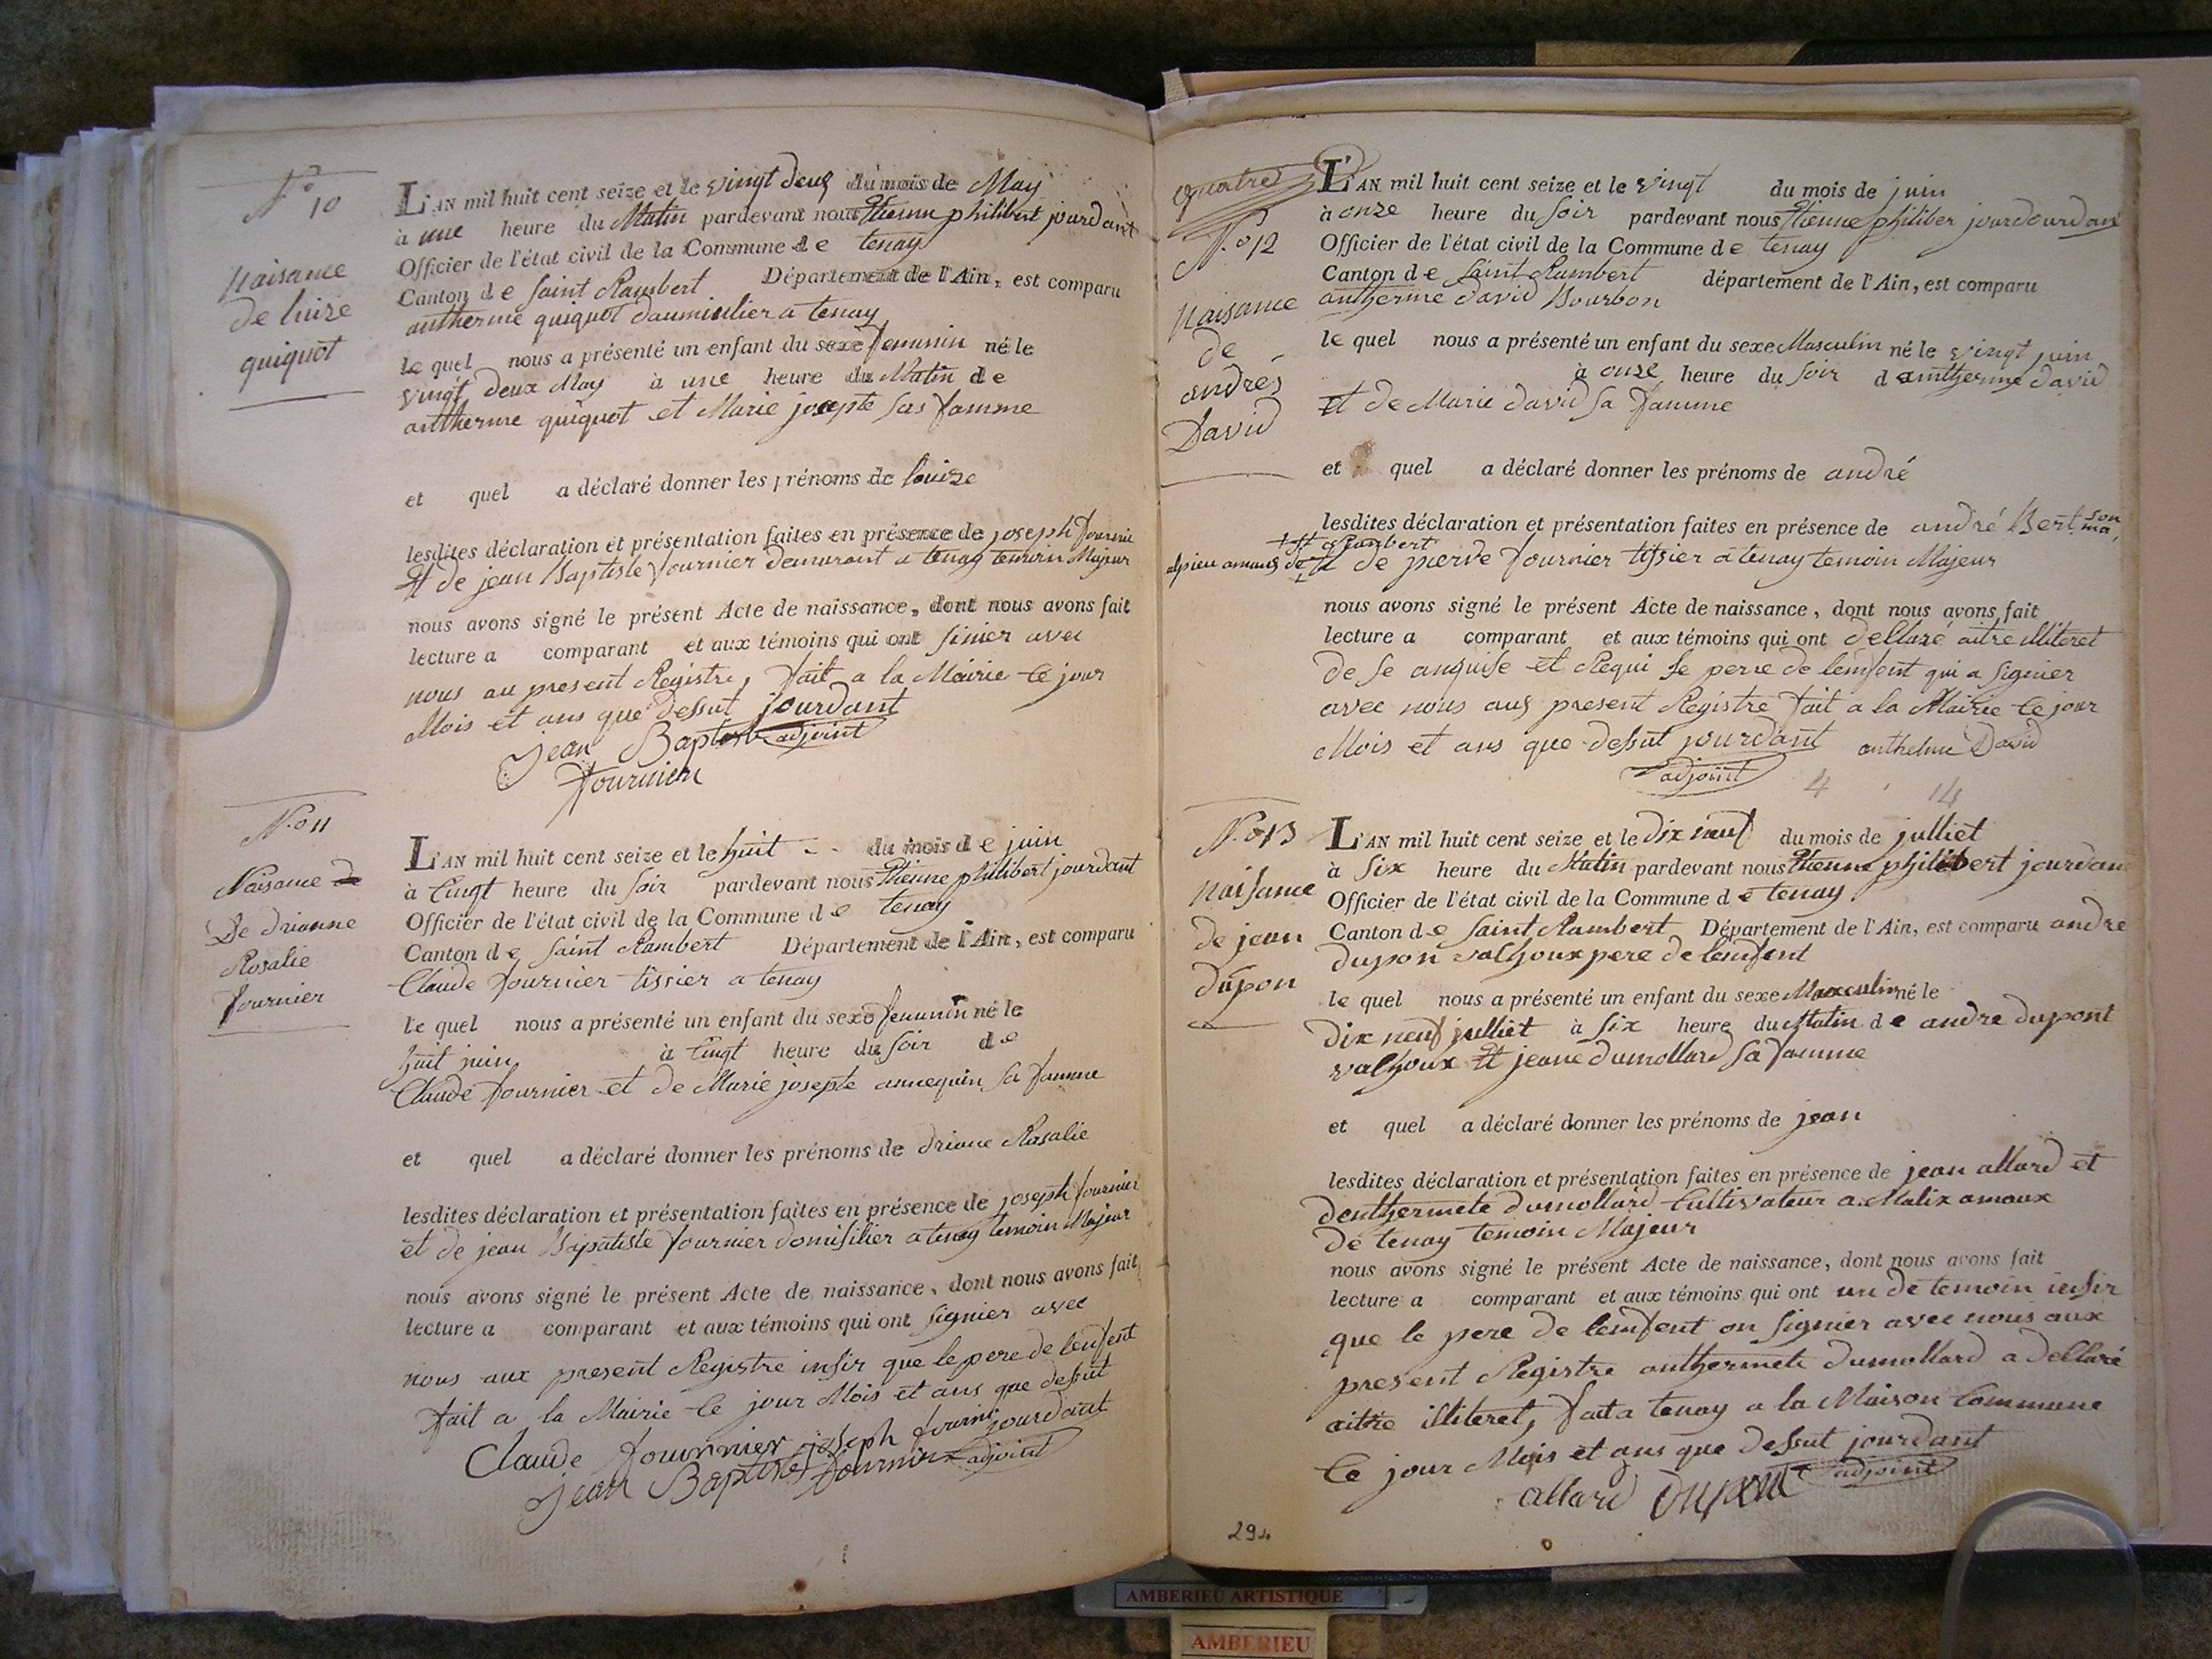 N.o 10
naisance
de luize
quiquot
L'AN mil huit cent seize et le vingt deux du mois de May
à une heure du Matin pardevant nous Etienne philibert jourdant
Officier de l'état civil de la Commune de tenay
Canton de Saint Rambert Département de l'Ain, est comparu
antherme quiquot daumicilier a tenay
le quel nous a présenté un enfant du sexe femimin né le
vingt deux May à une heure du Matin de
antherme quiquot et Marie josepte sas famme
et quel a déclaré donner les prénoms de louize
lesdites déclaration et présentation faites en présence de joseph fournie
Et de jean Baptiste fournier demurant a tenay temoin Majeur
nous avons signé le présent Acte de naissance, dont nous avons fait
lecture a comparant et aux témoins qui ont sinier avec
nous au present Registre, fait a la Mairie le jour
Mois et ans que dessut jourdant
adjoint
Jean Baptiste
fournier
N.o 11
Naisance de
De drianne
Rosalie
fournier
L'AN mil huit cent seize et le huit du mois de juin
à Cingt heure du soir pardevant nous Etienne philibert jourdant
Officier de l'état civil de la Commune de tenay
Canton de Saint Rambert Département de l'Ain, est comparu
Claude fournier tissier a tenay
le quel nous a présenté un enfant du sexe femimin né le
huit juin à Cingt heure du soir de
Claude fournier et de Marie josepte annequin sa famme
et quel a déclaré donner les prénoms de driane Rosalie
lesdites déclaration et présentation faites en présence de joseph fournier
et de jean Bapatiste fournier domisilier a tenay temoin Majeur
nous avons signé le présent Acte de naissance, dont nous avons fait
lecture a comparant et aux témoins qui ont signier avec
nous aux present Registre insir que le pere de lenfent
fait a la Mairie le jour Mois et ans que desut
Claude fournnier joseph jourdant
Jean Baptiste fournier adjoint
quatre
N.o 12
naisance
de
andres
David
L'AN mil huit cent seize et le vingt du mois de juin
à onze heure du soir pardevant nous Etienne philiber jourdourdant
Officier de l'état civil de la Commune de tenay
Canton de Saint Rambert département de l'Ain, est comparu
antherme david Bourbon
le quel nous a présenté un enfant du sexe Masculin né le vingt juin
à onze heure du soir d antherme david
et de Marie david sa famme
et quel a déclaré donner les prénoms de andré
lesdites déclaration et présentation faites en présence de andré Bert
de pierre fournier tissier a tenay temoin Majeur
nous avons signé le présent Acte de naissance, dont nous avons fait
lecture a comparant et aux témoins qui ont dellaré aitre illiteret
de se anquise et Requi le pere de lenfent qui a signier
avec nous aux present Registre fait a la Mairie le jour
Mois et ans que dessut jourdant anthelme David
adjoint
4 14
N.o 13
naisance
de jean
dupon
L'AN mil huit cent seize et le dix neuf du mois de julliet
à six heure du Matin pardevant nous Etienne philibert jourdan
Officier de l'état civil de la Commune de tenay
Canton de Saint Rambert Département de l'Ain, est comparu andre
dupon valhoux pere de lenfent
le quel nous a présenté un enfant du sexe Masculin né le
dix neuf julliet à six heure du Matin de andre dupont
valhoux Et jeane dumollard sa famme
et quel a déclaré donner les prénoms de jean
lesdites déclaration et présentation faites en présence de jean allard et
denthermete dumollard Cultivateur a Malix amaux
de tenay temoin Majeur
nous avons signé le présent Acte de naissance, dont nous avons fait
lecture a comparant et aux témoins qui ont un de temoin insir
que le pere de lenfent on signier avec nous aux
present Registre anthermete dumollard a dellaré
aitre illiteret, fait a tenay a la Maison Commune
le jour Mois et ans que dessut jourdant
adjoint
allard Dupont
294
AMBERIEU ARTISTIQUE
AMBERIEU